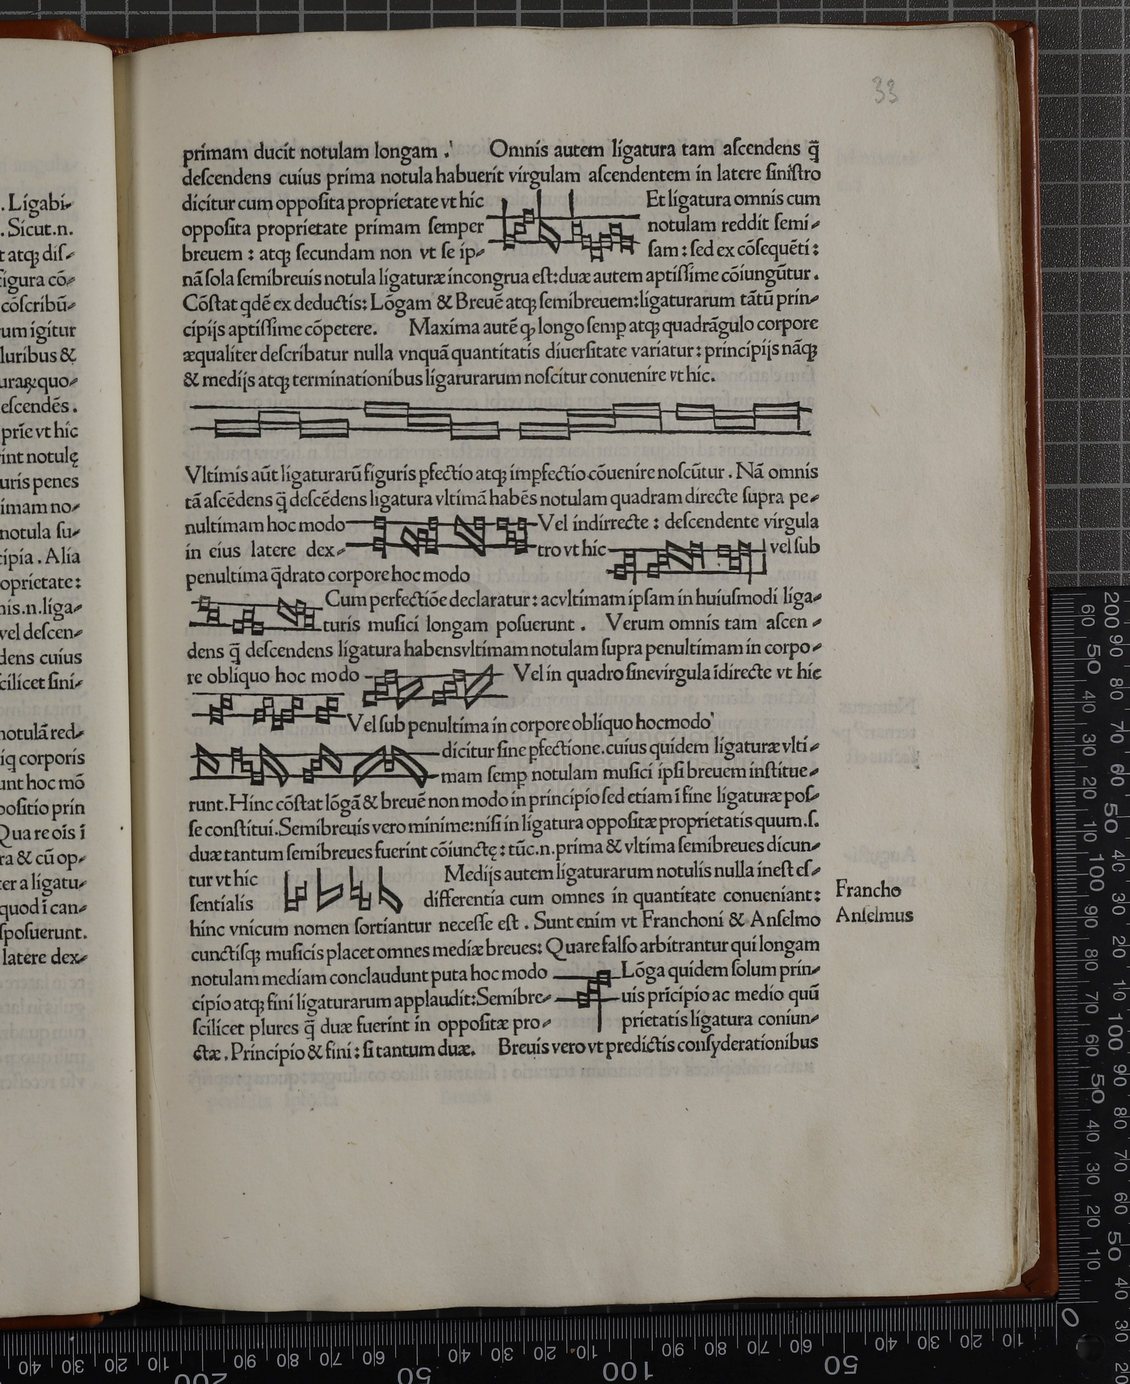 33
primam ducit notulam longam . Omnis autem ligatura tam aſcendens q̄
deſcendens cuius prima notula habuerit virgulam aſcendentem in latere ſiniſtro
dicitur cum oppoſita proprietate vt hic Et ligatura omnis cum
oppoſita proprietate primam ſemper notulam reddit ſemi-
breuem : atq; ſecundam non vt ſe ip- ſam : ſed ex cōſequēti :
nā ſola ſemibreuis notula ligaturæ incongrua eſt:duæ autem aptiſſime cōiungūtur .
Cōſtat qdē ex deductis: Lōgam & Breuē atq; ſemibreuem:ligaturarum tātū prin-
cipijs aptiſſime cōpetere. Maxima autē q; longo ſemp atq; quadrāgulo corpore
æqualiter deſcribatur nulla vnquā quantitatis diuerſitate variatur : principijs nāq;
& medijs atq; terminationibus ligarurarum noſcitur conuenire vt hic.
Vltimis aūt ligaturarū figuris pfectio atq; impfectio cōuenire noſcūtur . Nā omnis
tā aſcēdens q̄ deſcēdens ligatura vltimā habēs notulam quadram directe ſupra pe-
nultimam hoc modo Vel indirrecte : deſcendente virgula
in eius latere dex- tro vt hic vel ſub
penultima q̄drato corpore hoc modo
Cum perfectiōe declaratur : ac vltimam ipſam in huiuſmodi liga-
turis muſici longam poſuerunt . Verum omnis tam aſcen -
dens q̄ deſcendens ligatura habens vltimam notulam ſupra penultimam in corpo-
re obliquo hoc modo Vel in quadro ſine virgula īdirecte vt hic
Vel ſub penultima in corpore obliquo hoc modo
dicitur ſine pfectione.cuius quidem ligaturæ vlti-
mam ſemp notulam muſici ipſi breuem inſtitue-
runt.Hinc cōſtat lōgā & breuē non modo in principio ſed etiam ī fine ligaturæ poſ-
ſe conſtitui.Semibreuis vero minime:niſi in ligatura oppoſitæ proprietatis quum.ſ.
duæ tantum ſemibreues fuerint cōiunctę : tūc.n.prima & vltima ſemibreues dicun-
tur vt hic Medijs autem ligaturarum notulis nulla ineſt eſ-
ſentialis differentia cum omnes in quantitate conueniant :
hinc vnicum nomen ſortiantur neceſſe eſt . Sunt enim vt Franchoni & Anſelmo
cunctiſq; muſicis placet omnes mediæ breues: Quare falſo arbitrantur qui longam
notulam mediam concludunt puta hoc modo Lōga quidem ſolum prin-
cipio atq; fini ligaturarum applaudit:Semibre- uis prīcipio ac medio quū
ſcilicet plures q̄ duæ fuerint in oppoſitæ pro- prietatis ligatura coniun-
ctæ . Principio & fini : ſi tantum duæ. Breuis vero vt predictis conſyderationibus
Francho
Anſelmus